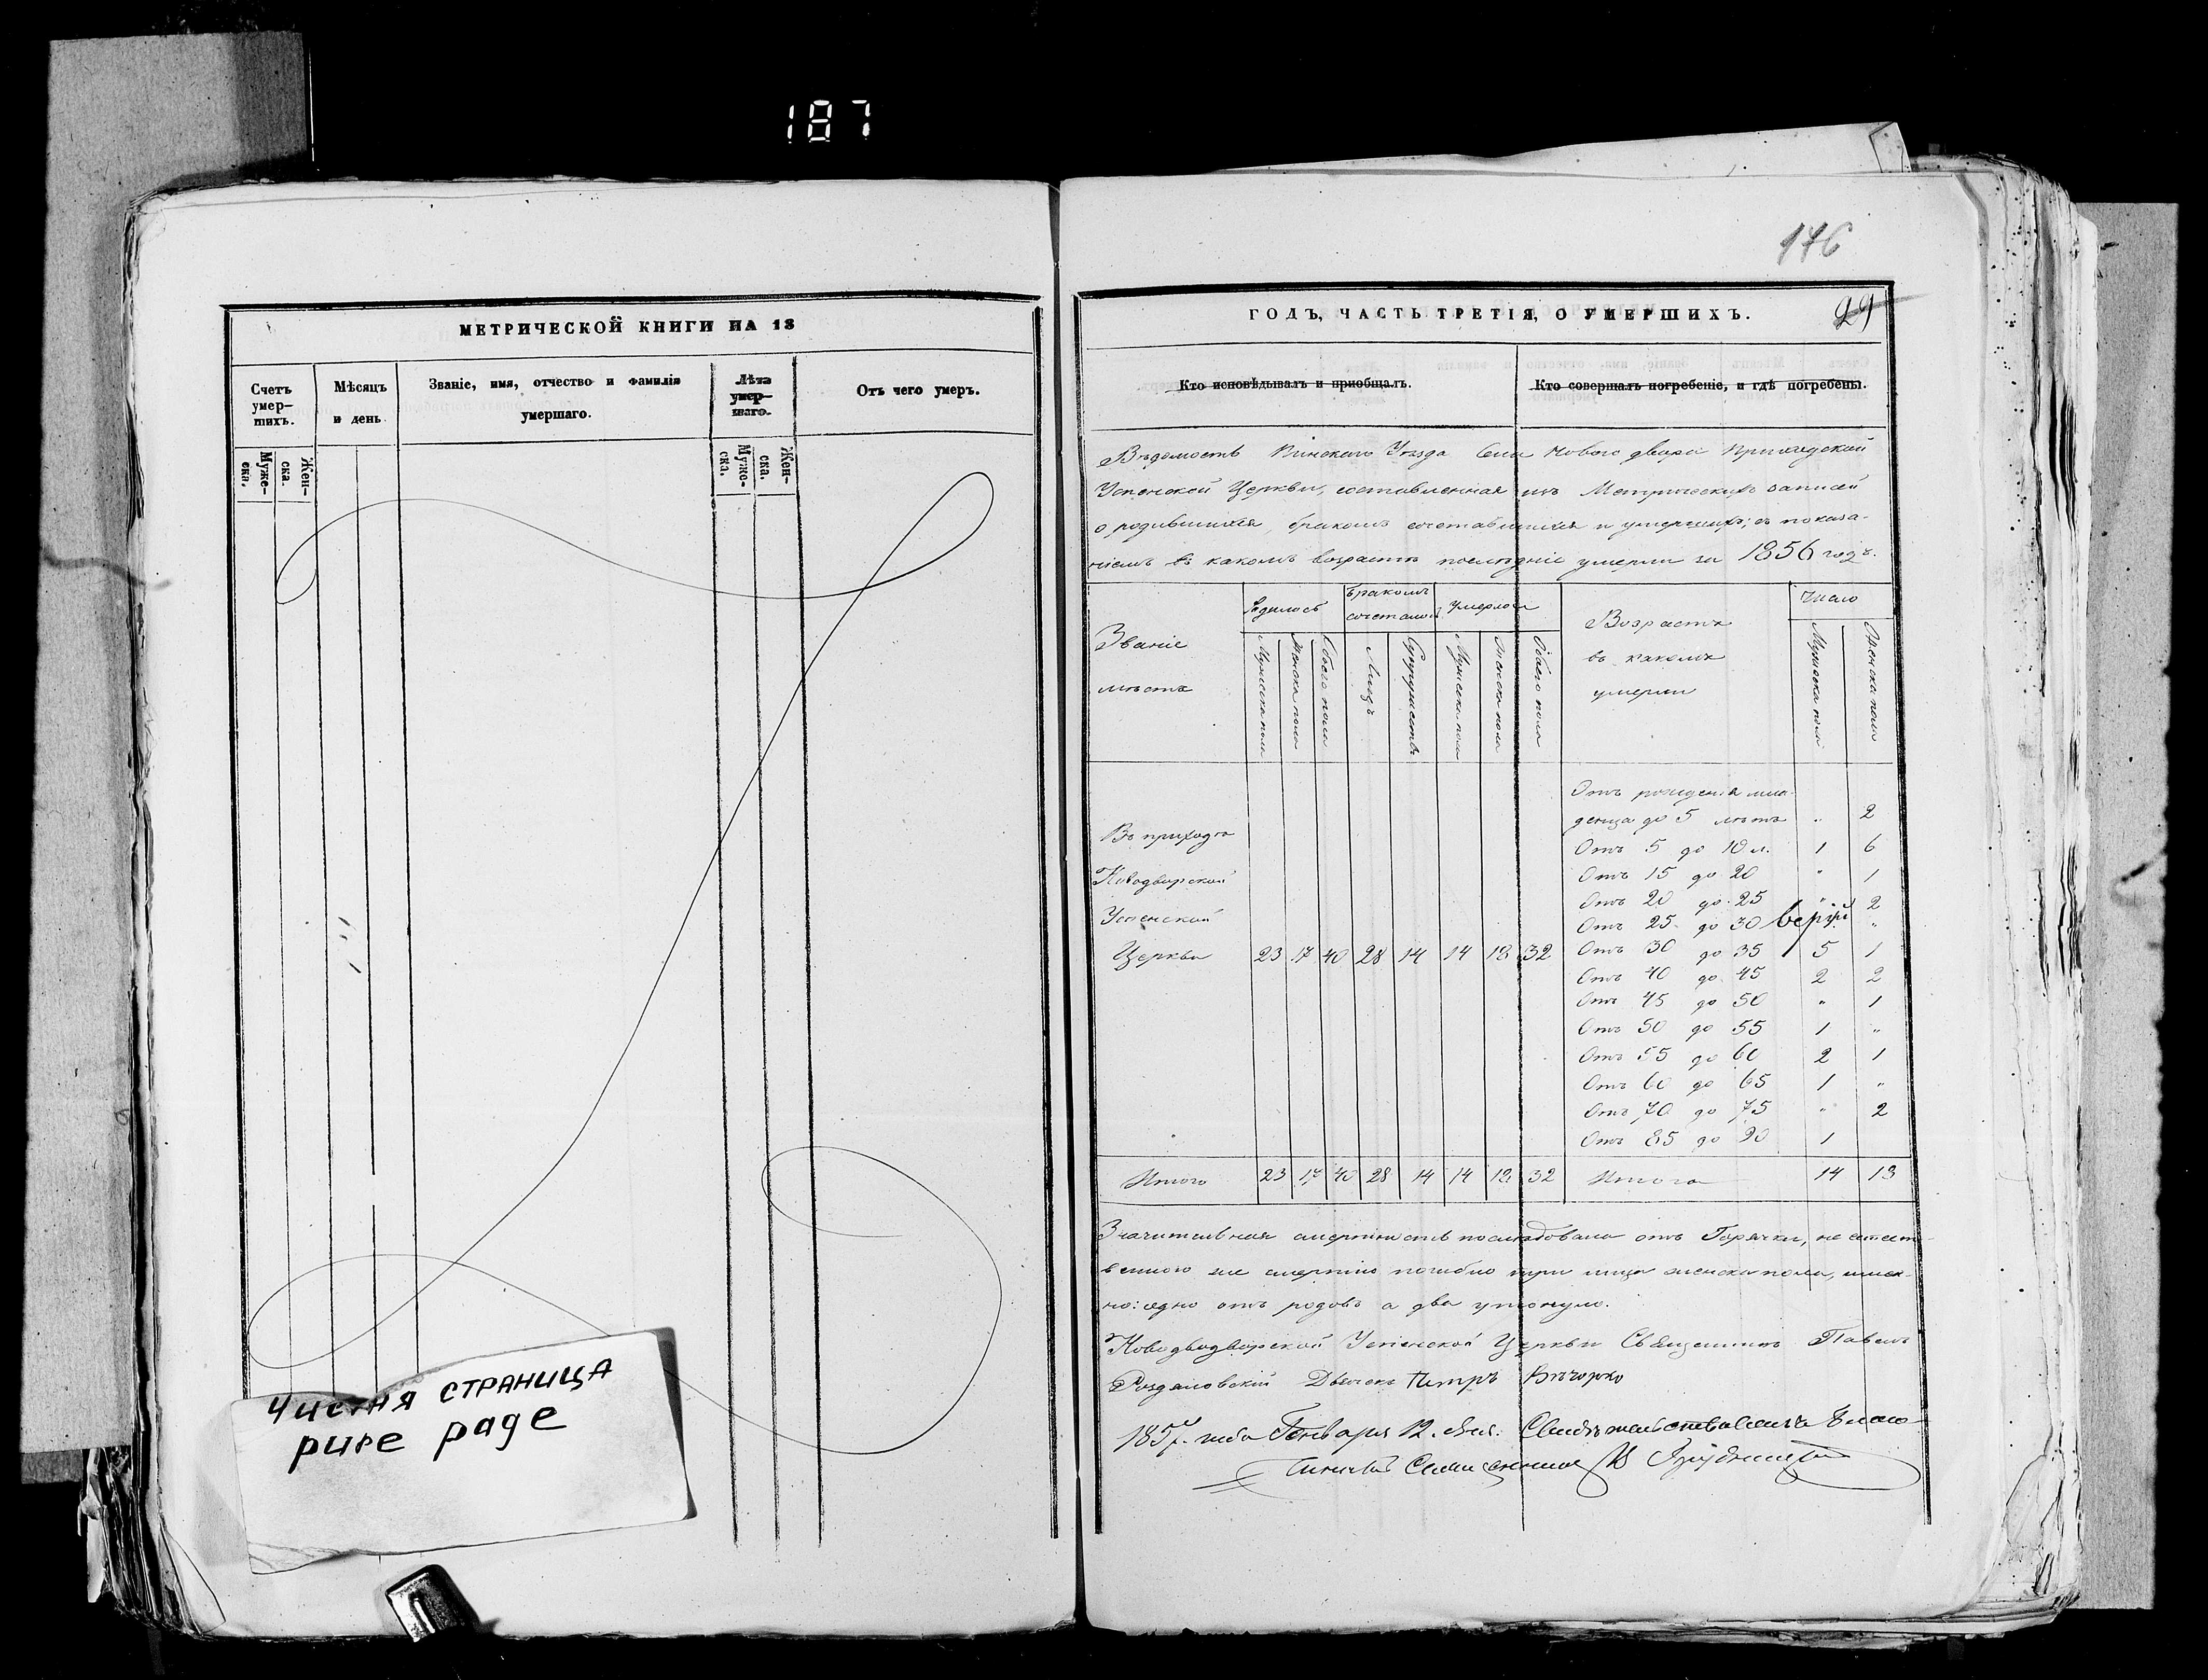 187
МЕТРИЧЕСКОЙ КНИГИ НА 18
Счетъ умер-шихъ.
Мѣсяцъ и день
Званіе, имя, отчество и фамилія умершаго.
Лѣта умер-шаго.
Отъ чего умеръ.
Муже-ска.
Жен-ска.
Муже-ска.
Жен-ска.
Чистая страница
pure page
146
29
ГОДЪ, ЧАСТЬ ТРЕТІЯ, О УМЕРШИХЪ.
Кто исповѣдывалъ и пріобщалъ.
Кто совершалъ погребеніе, и гдѣ погребены.
Вѣдомость Пинскаго Уѣзда Села Нового двора Приходской
Успенской Церкви, составленная изъ Метрическихъ записей
о родившихся, бракомъ сочетавшихся и умершихъ; съ показа-
ніемъ въ какомъ возрастѣ послѣдніе умерли за 1856 годъ.
Званіе мѣстъ
Родилось
Бракомъ сочеталось
Умерло
Возрастъ въ какомъ умерли
Число
Мужеска пола
Женска пола
Обоего пола
Лицъ
Супружествъ
Мужеска пола
Женска пола
Обоего пола
Мужеска пола
Женска пола
Отъ рожденія мла-
денца до 5 лѣтъ " 2
Въ приходѣ
Отъ 5 до 10 л. 1 6
Новодворской
Отъ 15 до 20 " 1
Отъ 20 до 25 " 2
Успенской
Отъ 25 до 30 "
Церкви 23 17 40 28 14 14 18 32
Отъ 30 до 35 5 1
Отъ 40 до 45 2 2
Отъ 45 до 50 " 1
Отъ 50 до 55 1 "
Отъ 55 до 60 2 1
Отъ 60 до 65 1 "
Отъ 70 до 75 " 2
Отъ 85 до 90 1
Итого 23 17 40 28 14 14 18 32 Итого 14 18
Значительная смертность послѣдовала отъ Горячки, не естест-
венною же смертію погибло три лица женска пола, имен-
но: одно отъ родовъ а два утонуло.
Новодводворской Успенской Церкви Священникъ Павелъ
Роздяловскій Дьячекъ Петръ Вечорко
1857. года Генваря 12. дня. Свидѣтельствовалъ Благо-
чинный Священникъ